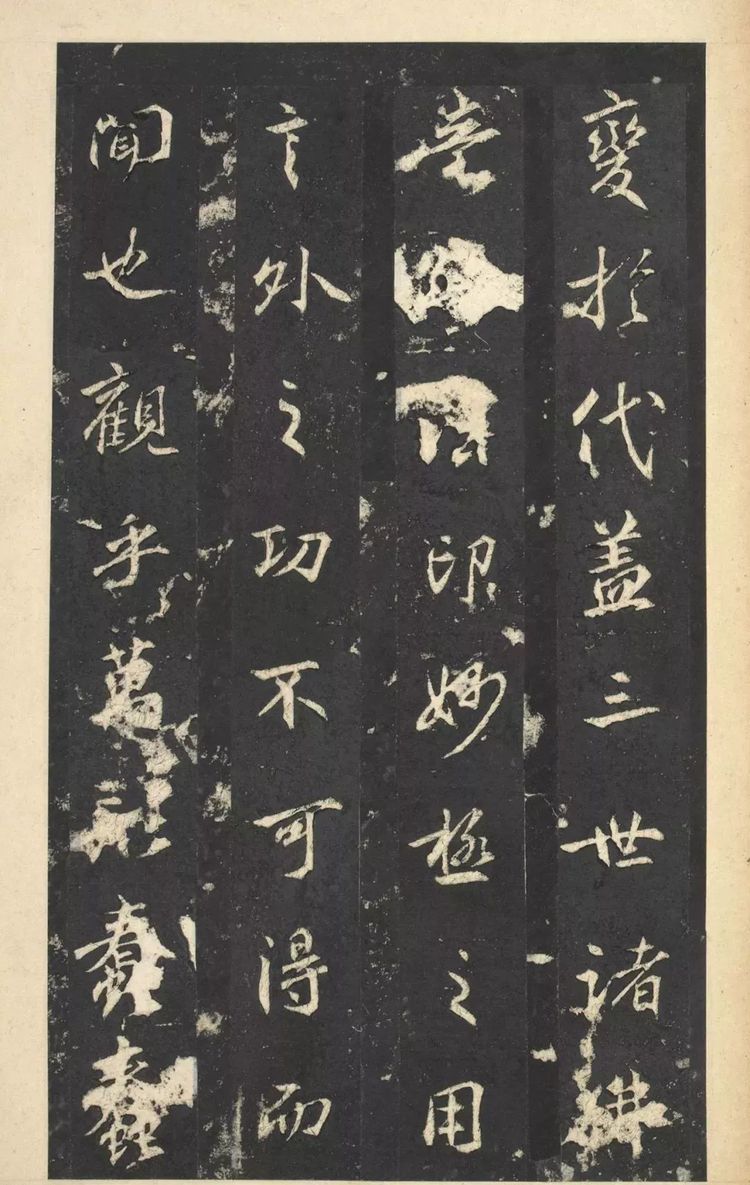 變於代盖三世諸佛
印妙極之用
言外之功不可得而
聞也觀乎萬蠢蠢